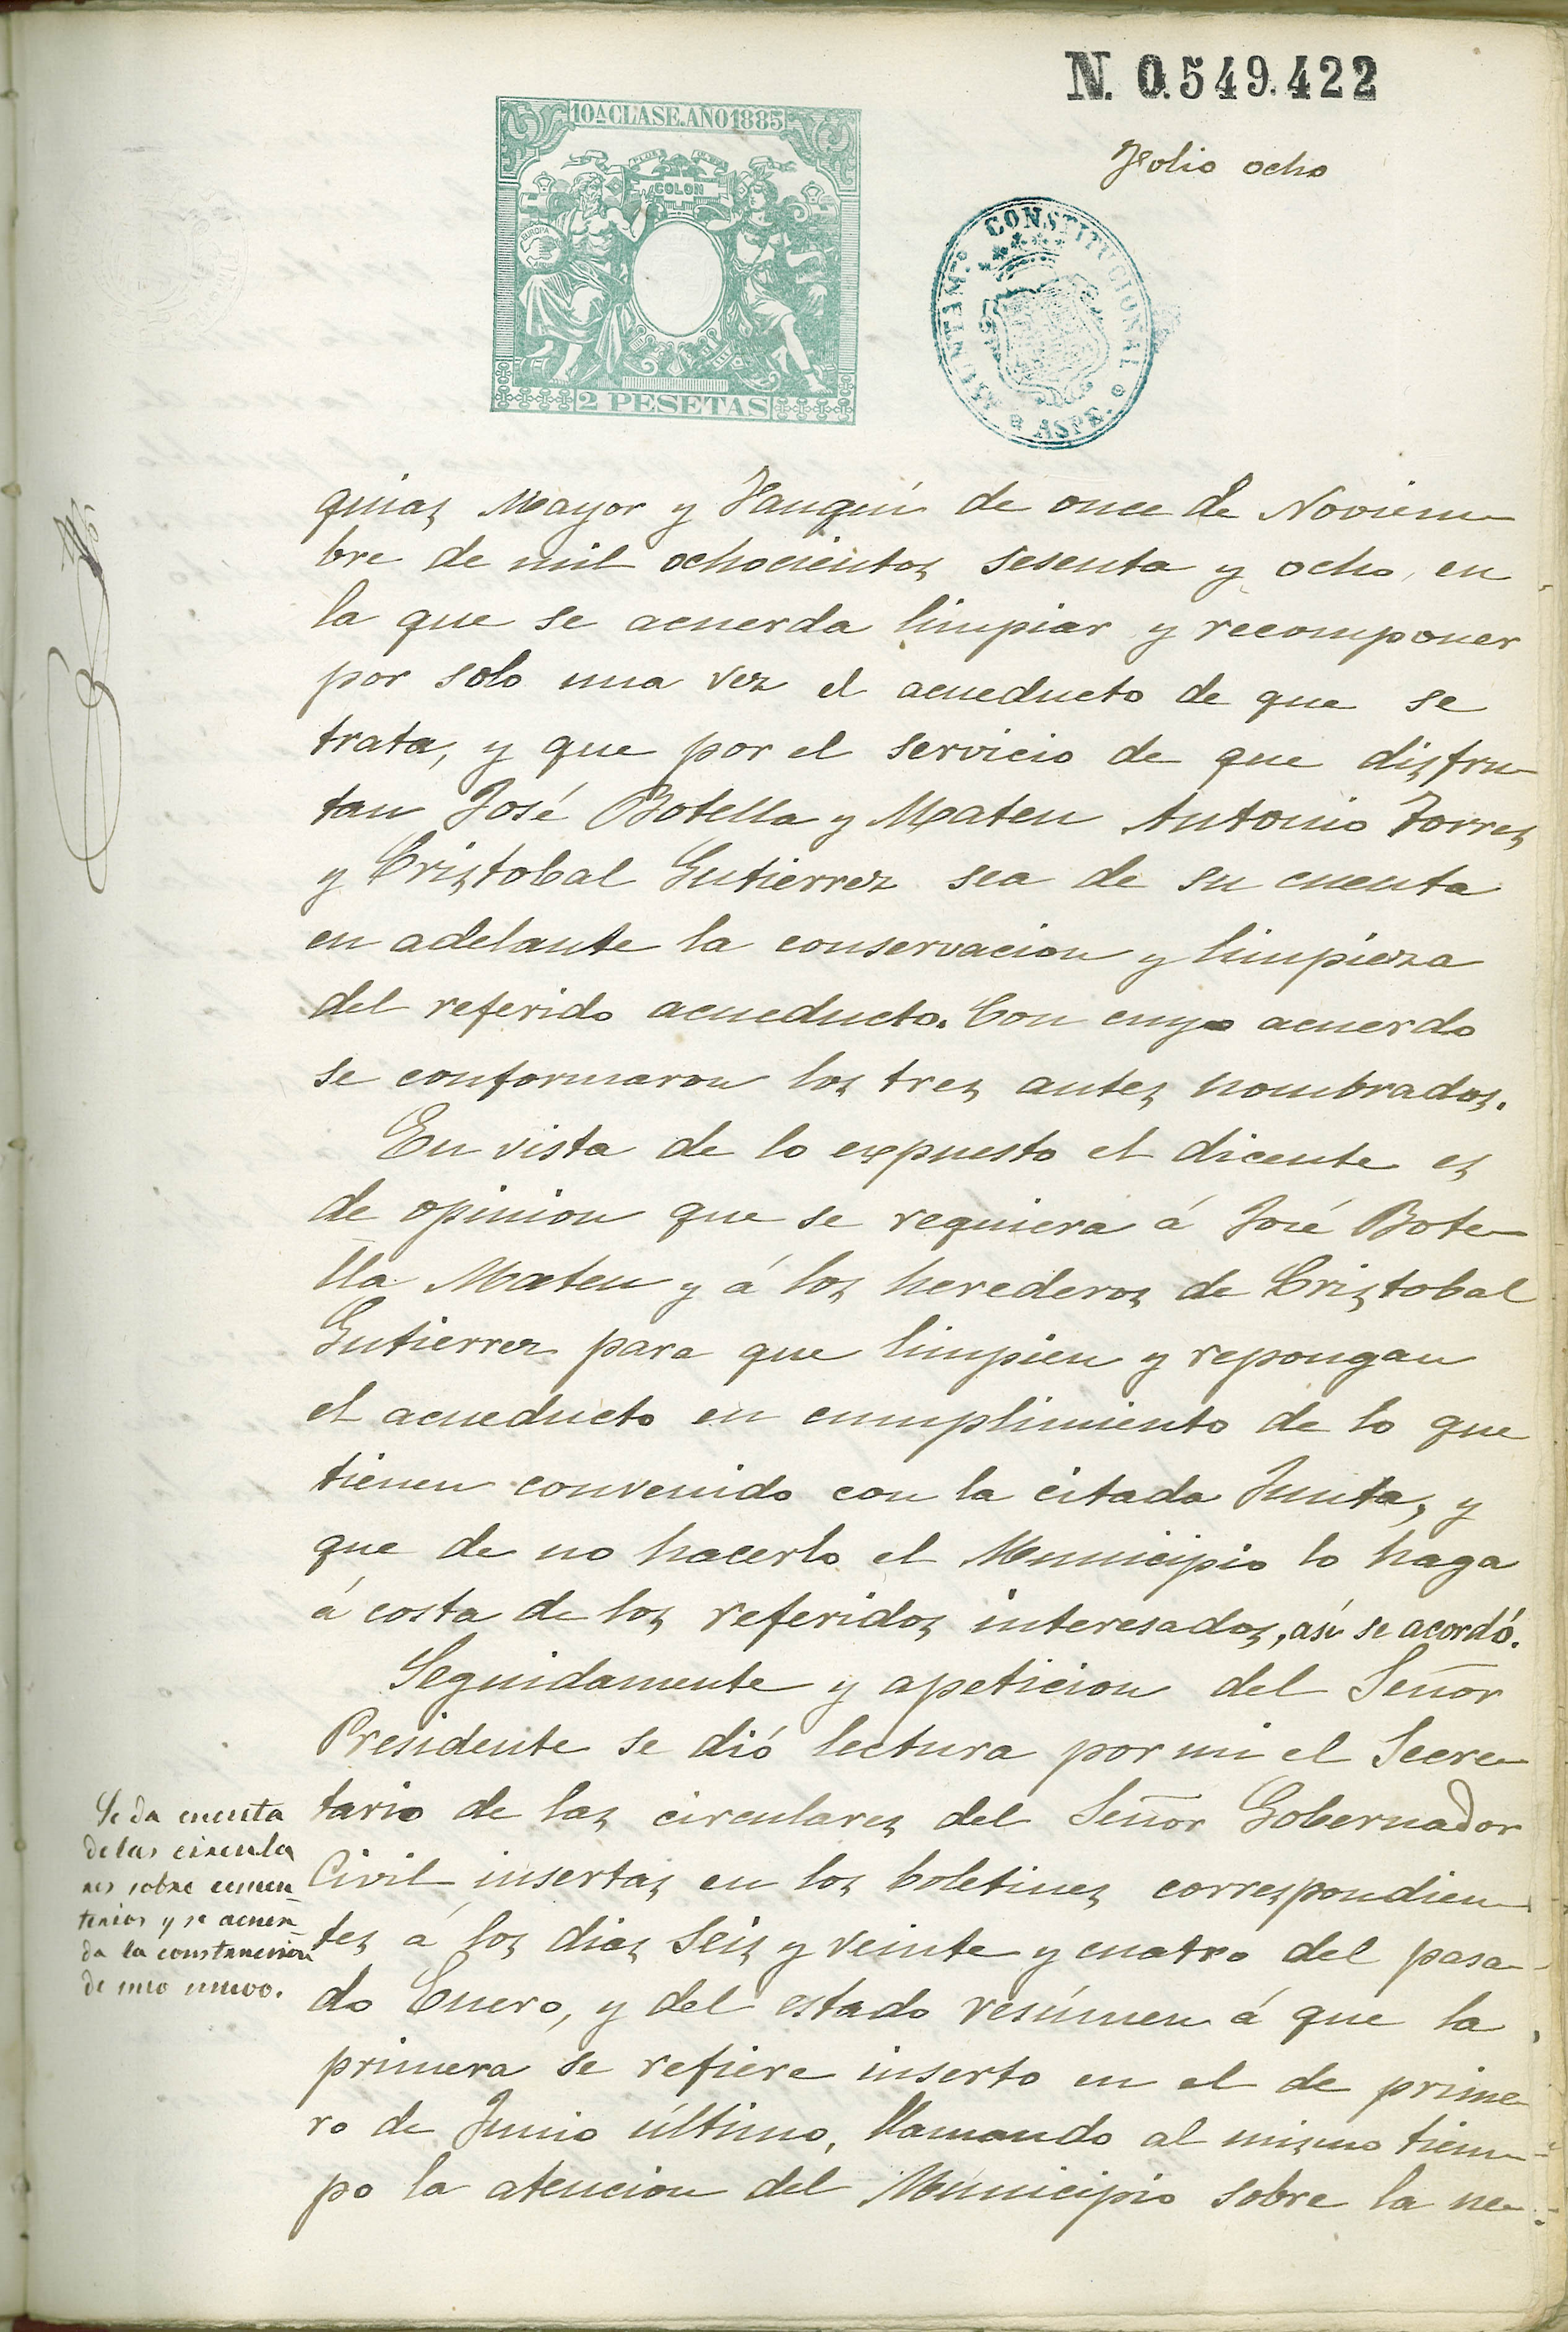 N. 0.549.422
10ª CLASE. AÑO 1885
COLON
EUROPA
2 PESETAS
Folio ocho
AYUNTAM.to CONSTITUCIONAL
ASPE.
quias Mayor y Fauquí de once de Noviem
bre de mil ochocientos sesenta y ocho, en
la que se acuerda limpiar y recomponer
por solo una vez el acueducto de que se
trata, y que por el servicio de que disfru
tan José Botella y Mateu Antonio Torres
y Cristobal Gutierrez sea de su cuenta
en adelante la conservacion y limpieza
del referido acueducto. Con cuyo acuerdo
se conformaron los tres antes nombrados.
En vista de lo expuesto el dicente es
de opinion que se requiera á José Bote
lla Mateu y á los herederos de Cristobal
Gutierrez para que limpien y repongan
el acueducto en cumplimiento de lo que
tienen convenido con la citada Junta, y
que de no hacerlo el Municipio lo haga
á costa de los referidos interesados, así se acordó.
Seguidamente y apeticion del Señor
Presidente se dió lectura por mi el Secre
tario de las circulares del Señor Gobernador
Civil insertas en los boletines correspondien
tes á los dias seis y veinte y cuatro del pasa
do Enero, y del estado resúmen á que la
primera se refiere inserto en el de prime
ro de Junio último, llamando al mismo tiem
po la atencion del Municipio sobre la ne
Se da cuenta
de las circula
res sobre cemen
terios y se acuer
da la construccion
de uno nuevo.